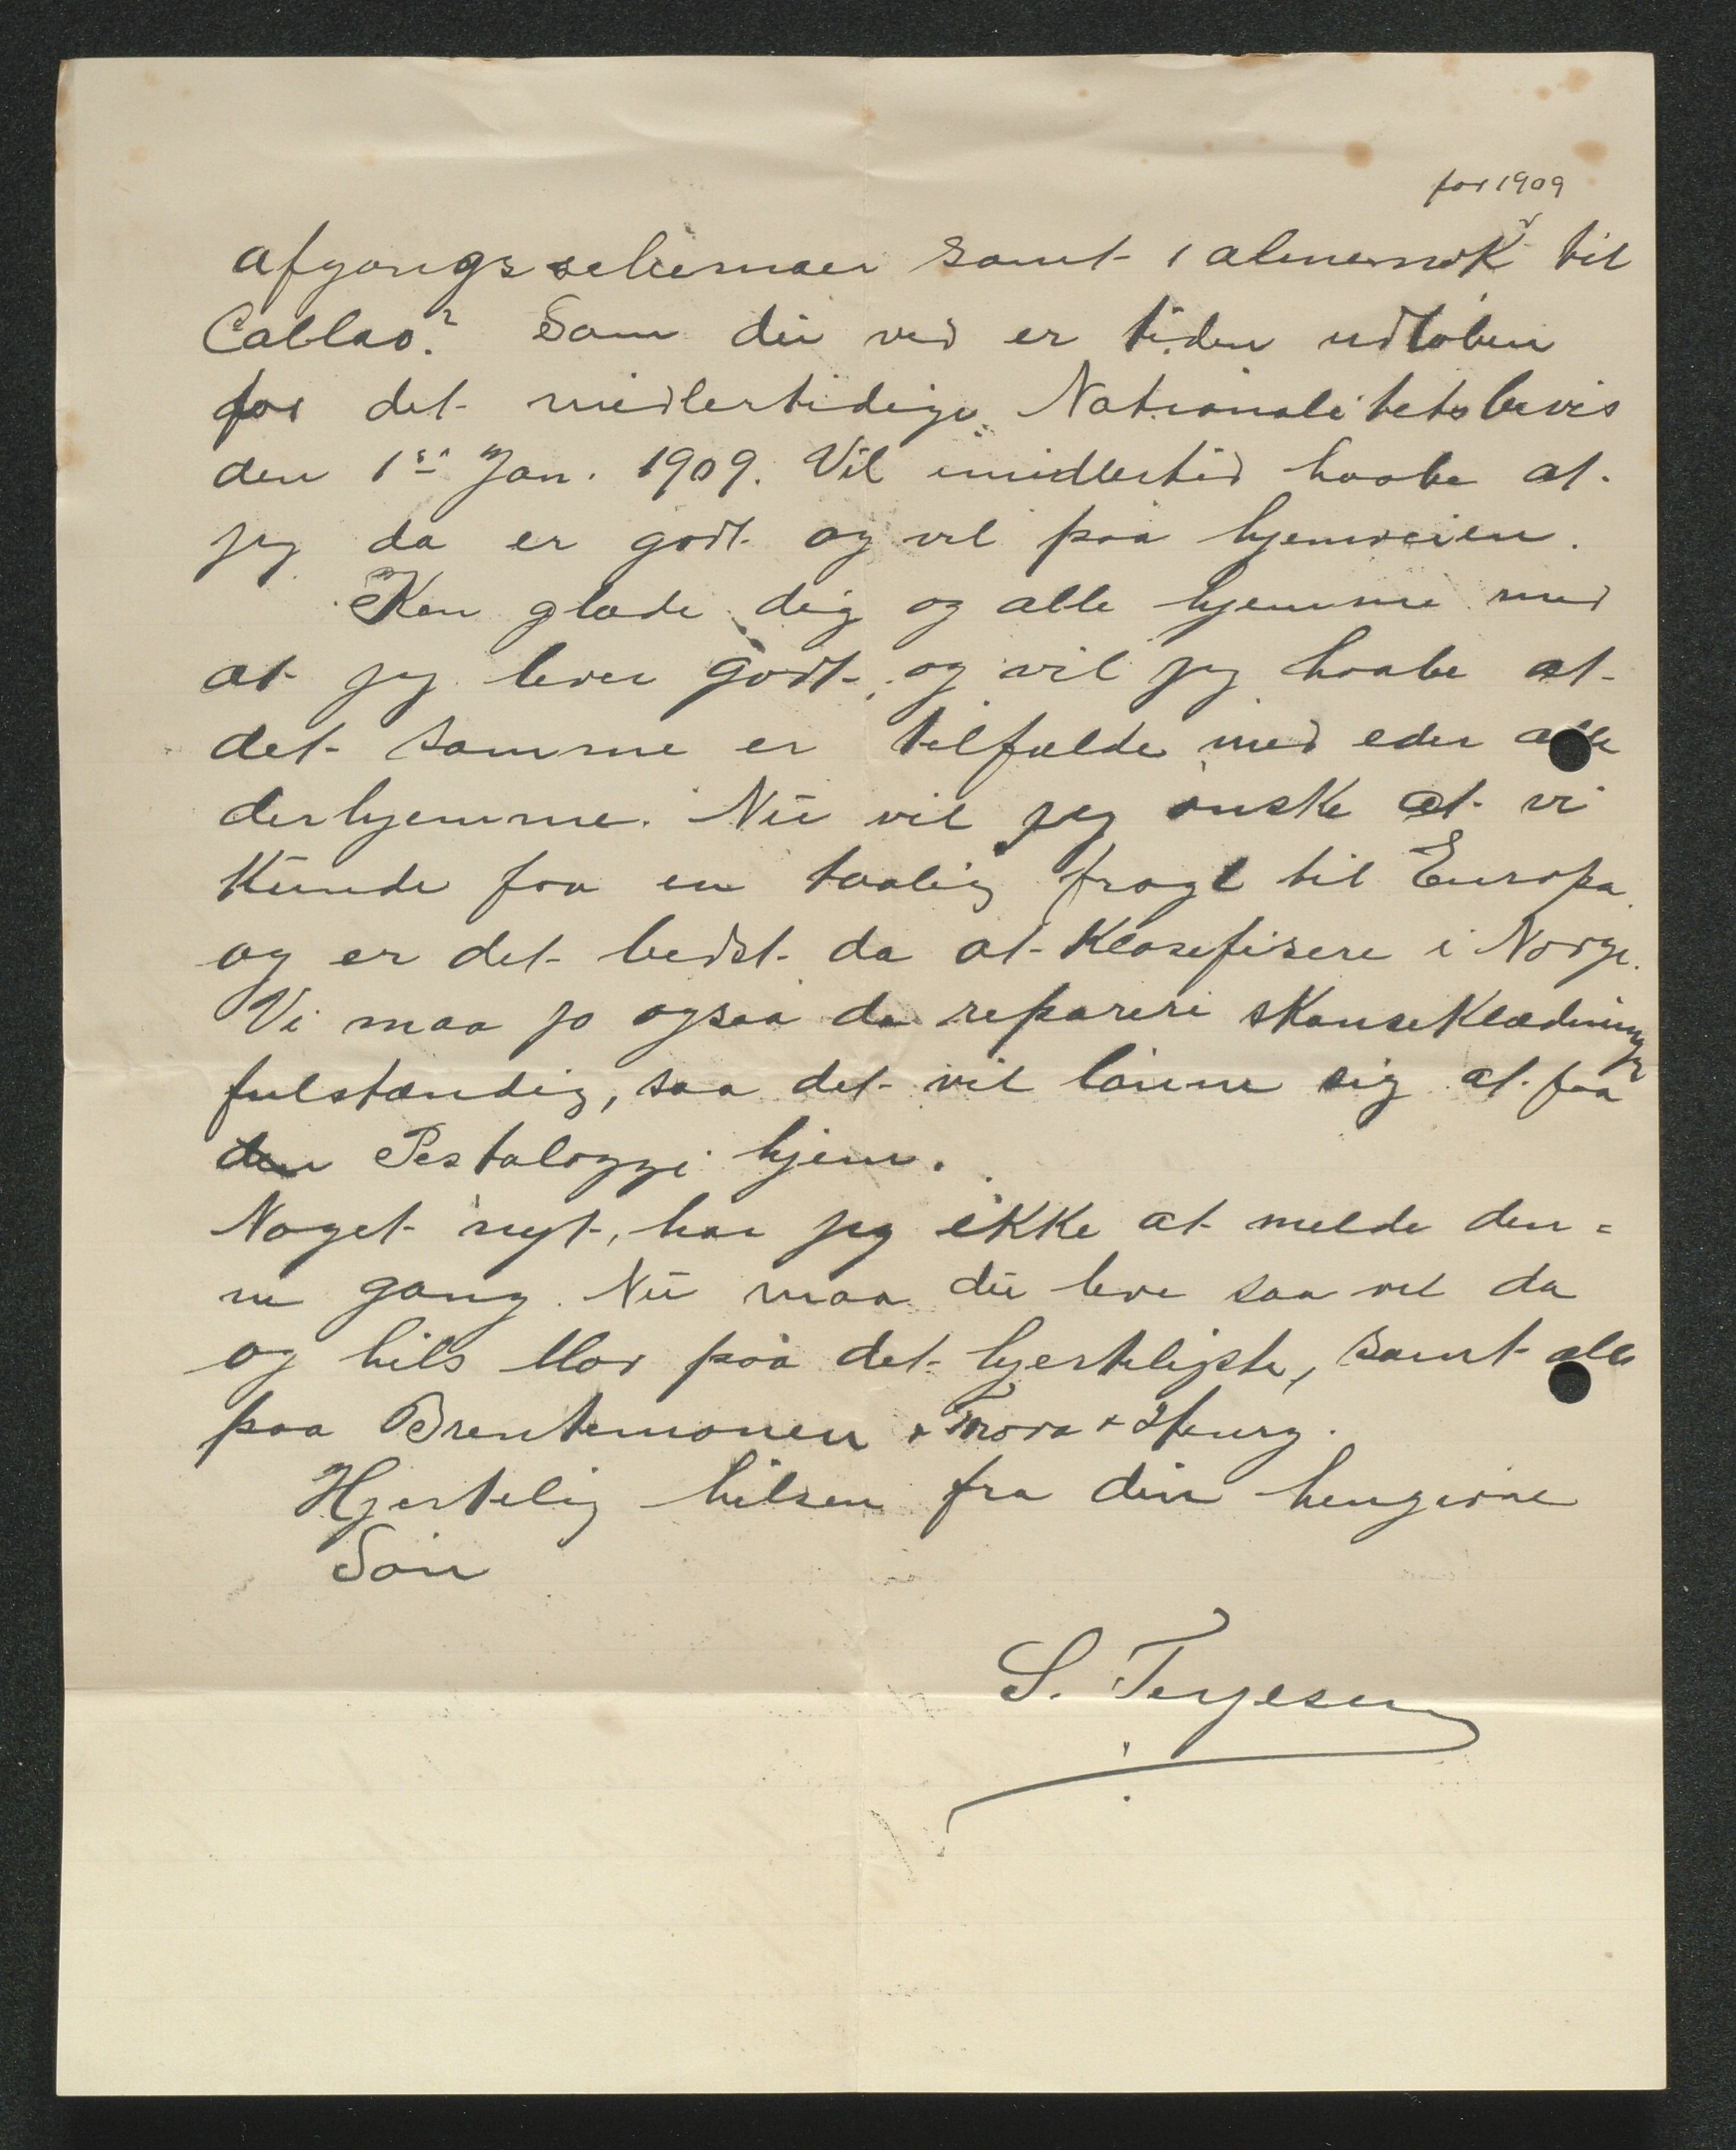 for 1909
afgangsschemaer samt 1 almenak til
Callao? Som du ved er tiden udløben
for det midlertidige Nationalitetsbevis
den 1ste Jan. 1909. Vil imidlertid haabe at
jeg da er godt og vel paa hjemveien.
Kan glæde dig og alle hjemme med
at jeg lever godt, og vil jeg haabe at
det samme er tilfælde med eder alle
derhjemme. Nu vil jeg ønske at vi
kunde faa en taalig fragt til Europa
og er det bedst da at klasefisere i Norge.
Vi maa jo ogsaa da reparere skanseklædningen
fulstændig, saa det vil lønne sig at faa
den Pestalozzi hjem.
Noget nyt, har jeg ikke at melde den=
ne gang. Nu maa du leve saa vel da
og hils Mor paa det hjerteligste, samt alle
paa Brentemonen +
Hjertelig hilsen fra din hengivne
Søn
S. Terjesen